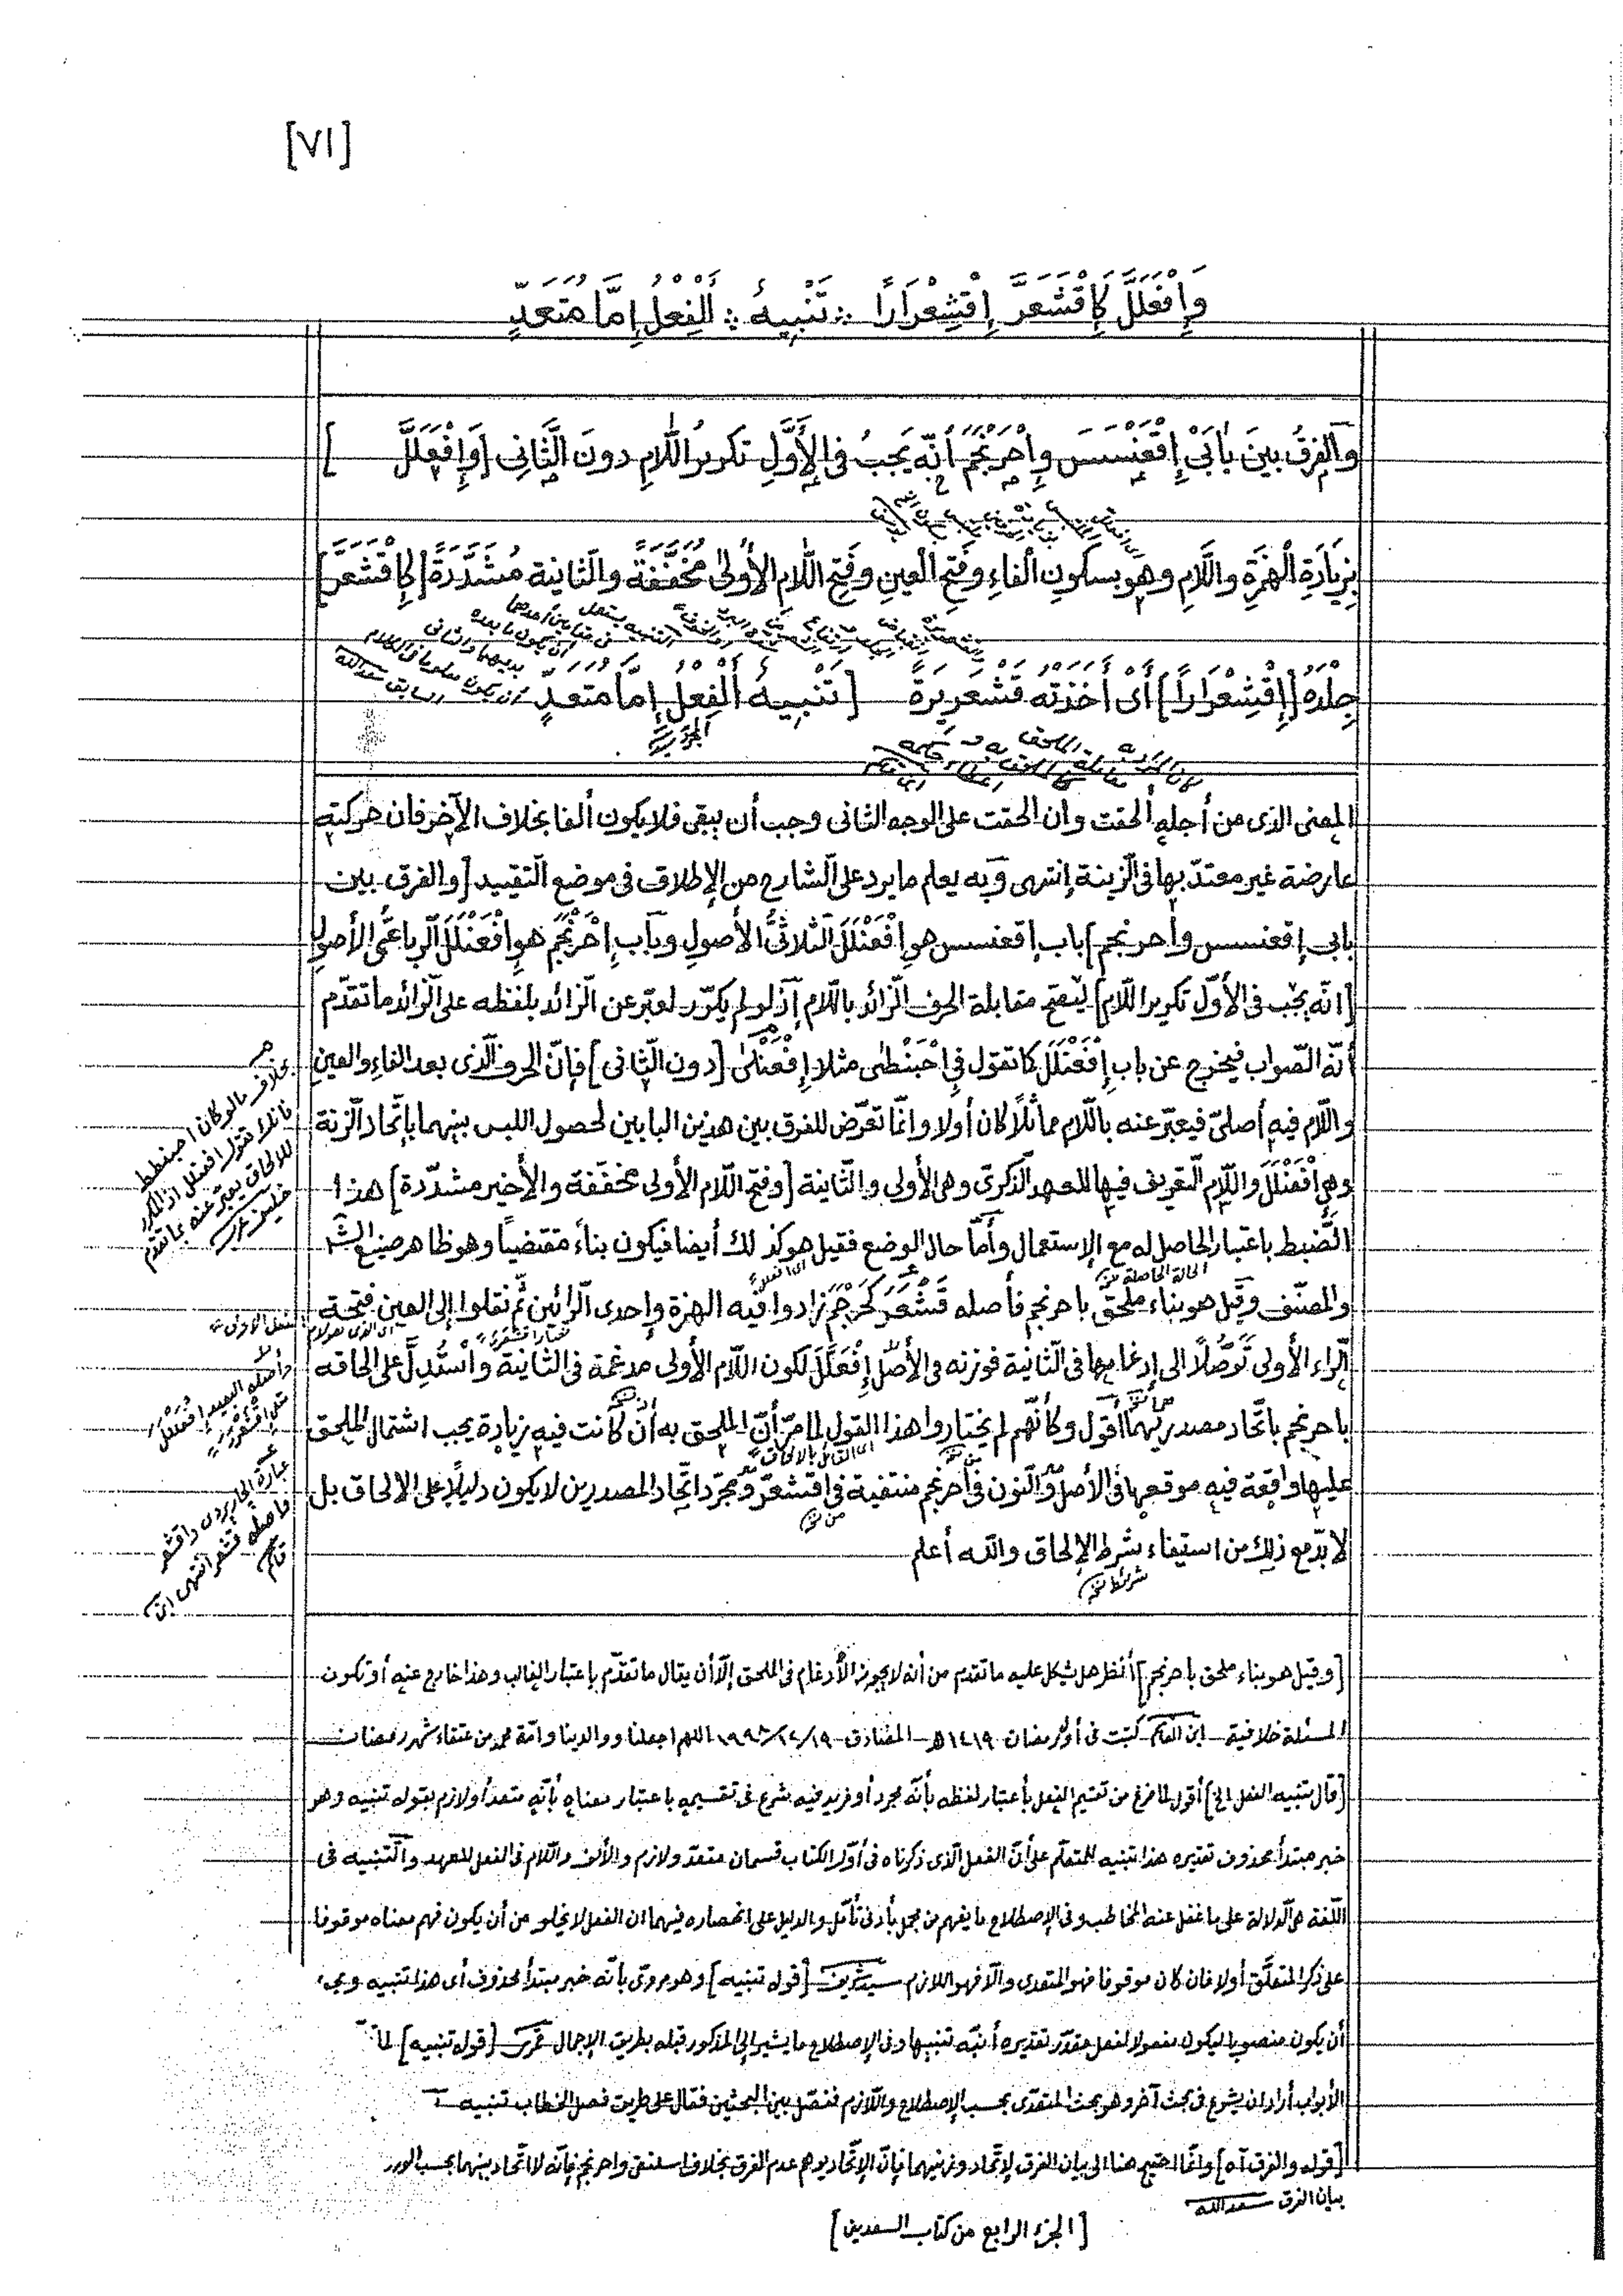 [٧١]
وَإِفْعَلَلَّ كَإِقْشَعَرَّ إِقْشِعْرَارًا ∴ تَنْبِيهٌ ∴ أَلْفِعْلُ إِمَّا مُتَعَدٍّ
وَالفرقُ بينَ بٰابَيْ إِقْعَنْسَسَ وإِحْرَنْجَمَ أنّه يَجبُ فى الأَوَّلِ تكريرُ اللّامِ دونَ الثَّانِى [وَإِفْعَلَلَّ ]
بِزِيَادَةِ الْهَمْزَةِ واللَّامِ وهو بسكونِ الفاءِ وفَتحِ العينِ وفَتحِ اللّامِ الأُولىٰ مُخَفَّفَةً والثّانية مُشَدَّدَةً [كإِقْشَعَرَّ]
جِلْدُهُ [إِقْشِعْرَاراً] أَىْ أَخَذَتْهُ قَشْعَرِيرَةٌ [تَنْبِيهٌ أَلْفِعْلُ إِمَّا مُتَعَدٍّ
التنبيه يستعمل
فى مقامين أحدهما
أن يكون ما بعده
بديهيا والثانى
أن يكون معلوما فى الكلام
السابق سعد الله
المعنى الذى من أجله ألحقت وان الحقت على الوجه الثانى وجب أن يبقى فلا يكون ألفا بخلاف الآخر فان حركته
عارضة غير معتدّ بها فى الزينة إنتهى وبه يعلم ما يرد على الشارح من الإطلاق فى موضع التقييد [والفرق بين
بابى إقعنسس وأحرنجم] باب إقعنسس هو إفْعَنْلَلَ الثلاثىُّ الأصولِ وبابِ إحْرَنْجَمَ هو إفْعَنْلَلَ الرباعىُّ الأصولِ
[انّه يجب فى الأوّل تكرير اللّام] ليتضح مقابلة الحرف الزائد باللّام إذ لو لم يكرّر لعبّر عن الزائد بلفظه على الزائد ما تقدّم
أنّه الصّواب فيخرج عن باب إفْعَنْلَلَ كما تقول فى إحْبَنْطىٰ مثلا إفْعَنْلىٰ [دون الثّانى] فإنّ الحرف الّذى بعد الفاءِ والعينِ
واللّام فيه أصلىّ فيعبّر عنه باللّام مماثلاً كان أولا وانّما تعرّض للفرق بين هذين البابين لحصول اللبس بينهما بإتّحاد الزنة
وهى أفْعَنْلَلَ واللّام التعريف فيها للعهد الذكرىّ وهى الأولى والثّانية [وفتح اللّام الأولى مخفّفة والأخير مشدّدة] هذا
الضّبط باعتبار الحاصل له مع الإستعمال وأمّا حال الوضع فقيل هو كذلك أيضا فيكون بناءً مقتضياً وهو ظاهر صنيع الشّر
والمصنّف وقيل هو بناء ملحق باحرنجم فأصله قَشْعَرَ كَحَرْجَمَ زادوا فيه الهمزة وإحدى الرائين ثمّ نقلوا إلى العين فتحة
الرّاء الأولى تَوَصُّلاً الى إدغامها فى الثّانية فوزنه والأصل إفْعَلَلَّ لكون اللّام الأولى مدغمة فى الثّانية وأسْتُدِلَّ على إلحاقه
باحرنجم باتّحاد مصدريهما أقول وكأنّهم لم يختاروا هذا القول لما مرّ أنّ الملحق به أن كانت فيه زيادة يجب اشتمال الملحق
عليها واقعة فيه موقعها فى الأصل والنون فى أحرنجم منتفية فى اقشعرّ ومجرّد إتّحاد المصدرين لا يكون دليلاً على الإلحاق بل
لا بدّ مع ذلك من استيفاء شرط الإلحاق والله أعلم
بخلاف ما لو كان احبنطط
فانك تقول افعنلل اذ المكرر
للالحاق يعبر عنه بما تقدم
عبارة الجاربردى واقشعر
فأصله قشعر انتهى ابن
قاسم
[وقيل هو بناء ملحق باحرنجم] أنظر هل يشكل عليه ما تقدم من أنه لا يجوز الأدغام فى الملحق إلّا أن يقال ما تقدّم بإعتبار الغالب وهذا خارج عنه أو تكون
المسئلة خلافية ابن القاسم كتبت فى أول رمضان ١٤١٩هـ المصادق ١٩/١٢/١٩٩٨ اللهم اجعلنا ووالدينا وامّة محمد من عتقاء شهر رمضان
[قال تنبيه الفعل الخ] أقول لما فرغ من تقسيم الفعل بأعتبار لفظه بأنّه مجرد أو مزيد فيه شرع فى تقسيمه باعتبار معناه بأنّه متعد أو لازم بقوله تنبيه وهو
خبر مبتدأ محذوف تقديره هذا تنبيه للمتعلّم على أنّ الفعل الّذى ذكرناه فى أوّل الكتاب قسمان متعدّ ولازم والألف واللّام فى الفعل للعهد والتّنبيه فى
اللّغة هى الدّلالة على ما غفل عنه المخاطب وفى الإصطلاح ما يفهم من مجمل بأدنى تأمّل والدليل على انحصاره فيهما ان الفعل لا يخلو من أن يكون فهم معناه موقوفا
على ذكر المتعلّق أولا فان كان موقوفا فهو المتعدى والّا فهو اللازم سيد شريف [قوله تنبيه] وهو مروىّ بأنّه خبر مبتدأ محذوف أى هذا تنبيه ويجىء
أن يكون منصوبا ليكون مفعولا لفعل مقدّر تقديره أنبّه تنبيها وفى الإصطلاح ما يشير إلى المذكور قبله بطريق الإجمال غزى [قوله تنبيه] لمّا تمّ
الأبواب أراد ان يشرع فى بحث آخر وهو بحث المتعدّى بحسب الإصطلاح واللّازم ففصّل بين البحثين فقال على طريق فصل الخطاب تنبيه
[قوله والفرق آه] وانّما احتيج هنا الى بيان الفرق لإتّحاد وزنيهما فإنّ الإتّحاد يوهم عدم الفرق بخلاف اسلنقى واحرنجم فإنّه لا اتّحاد بينهما بحسب
بيان الفرق سعد الله
[الجزء الرابع من كتاب السعدين]